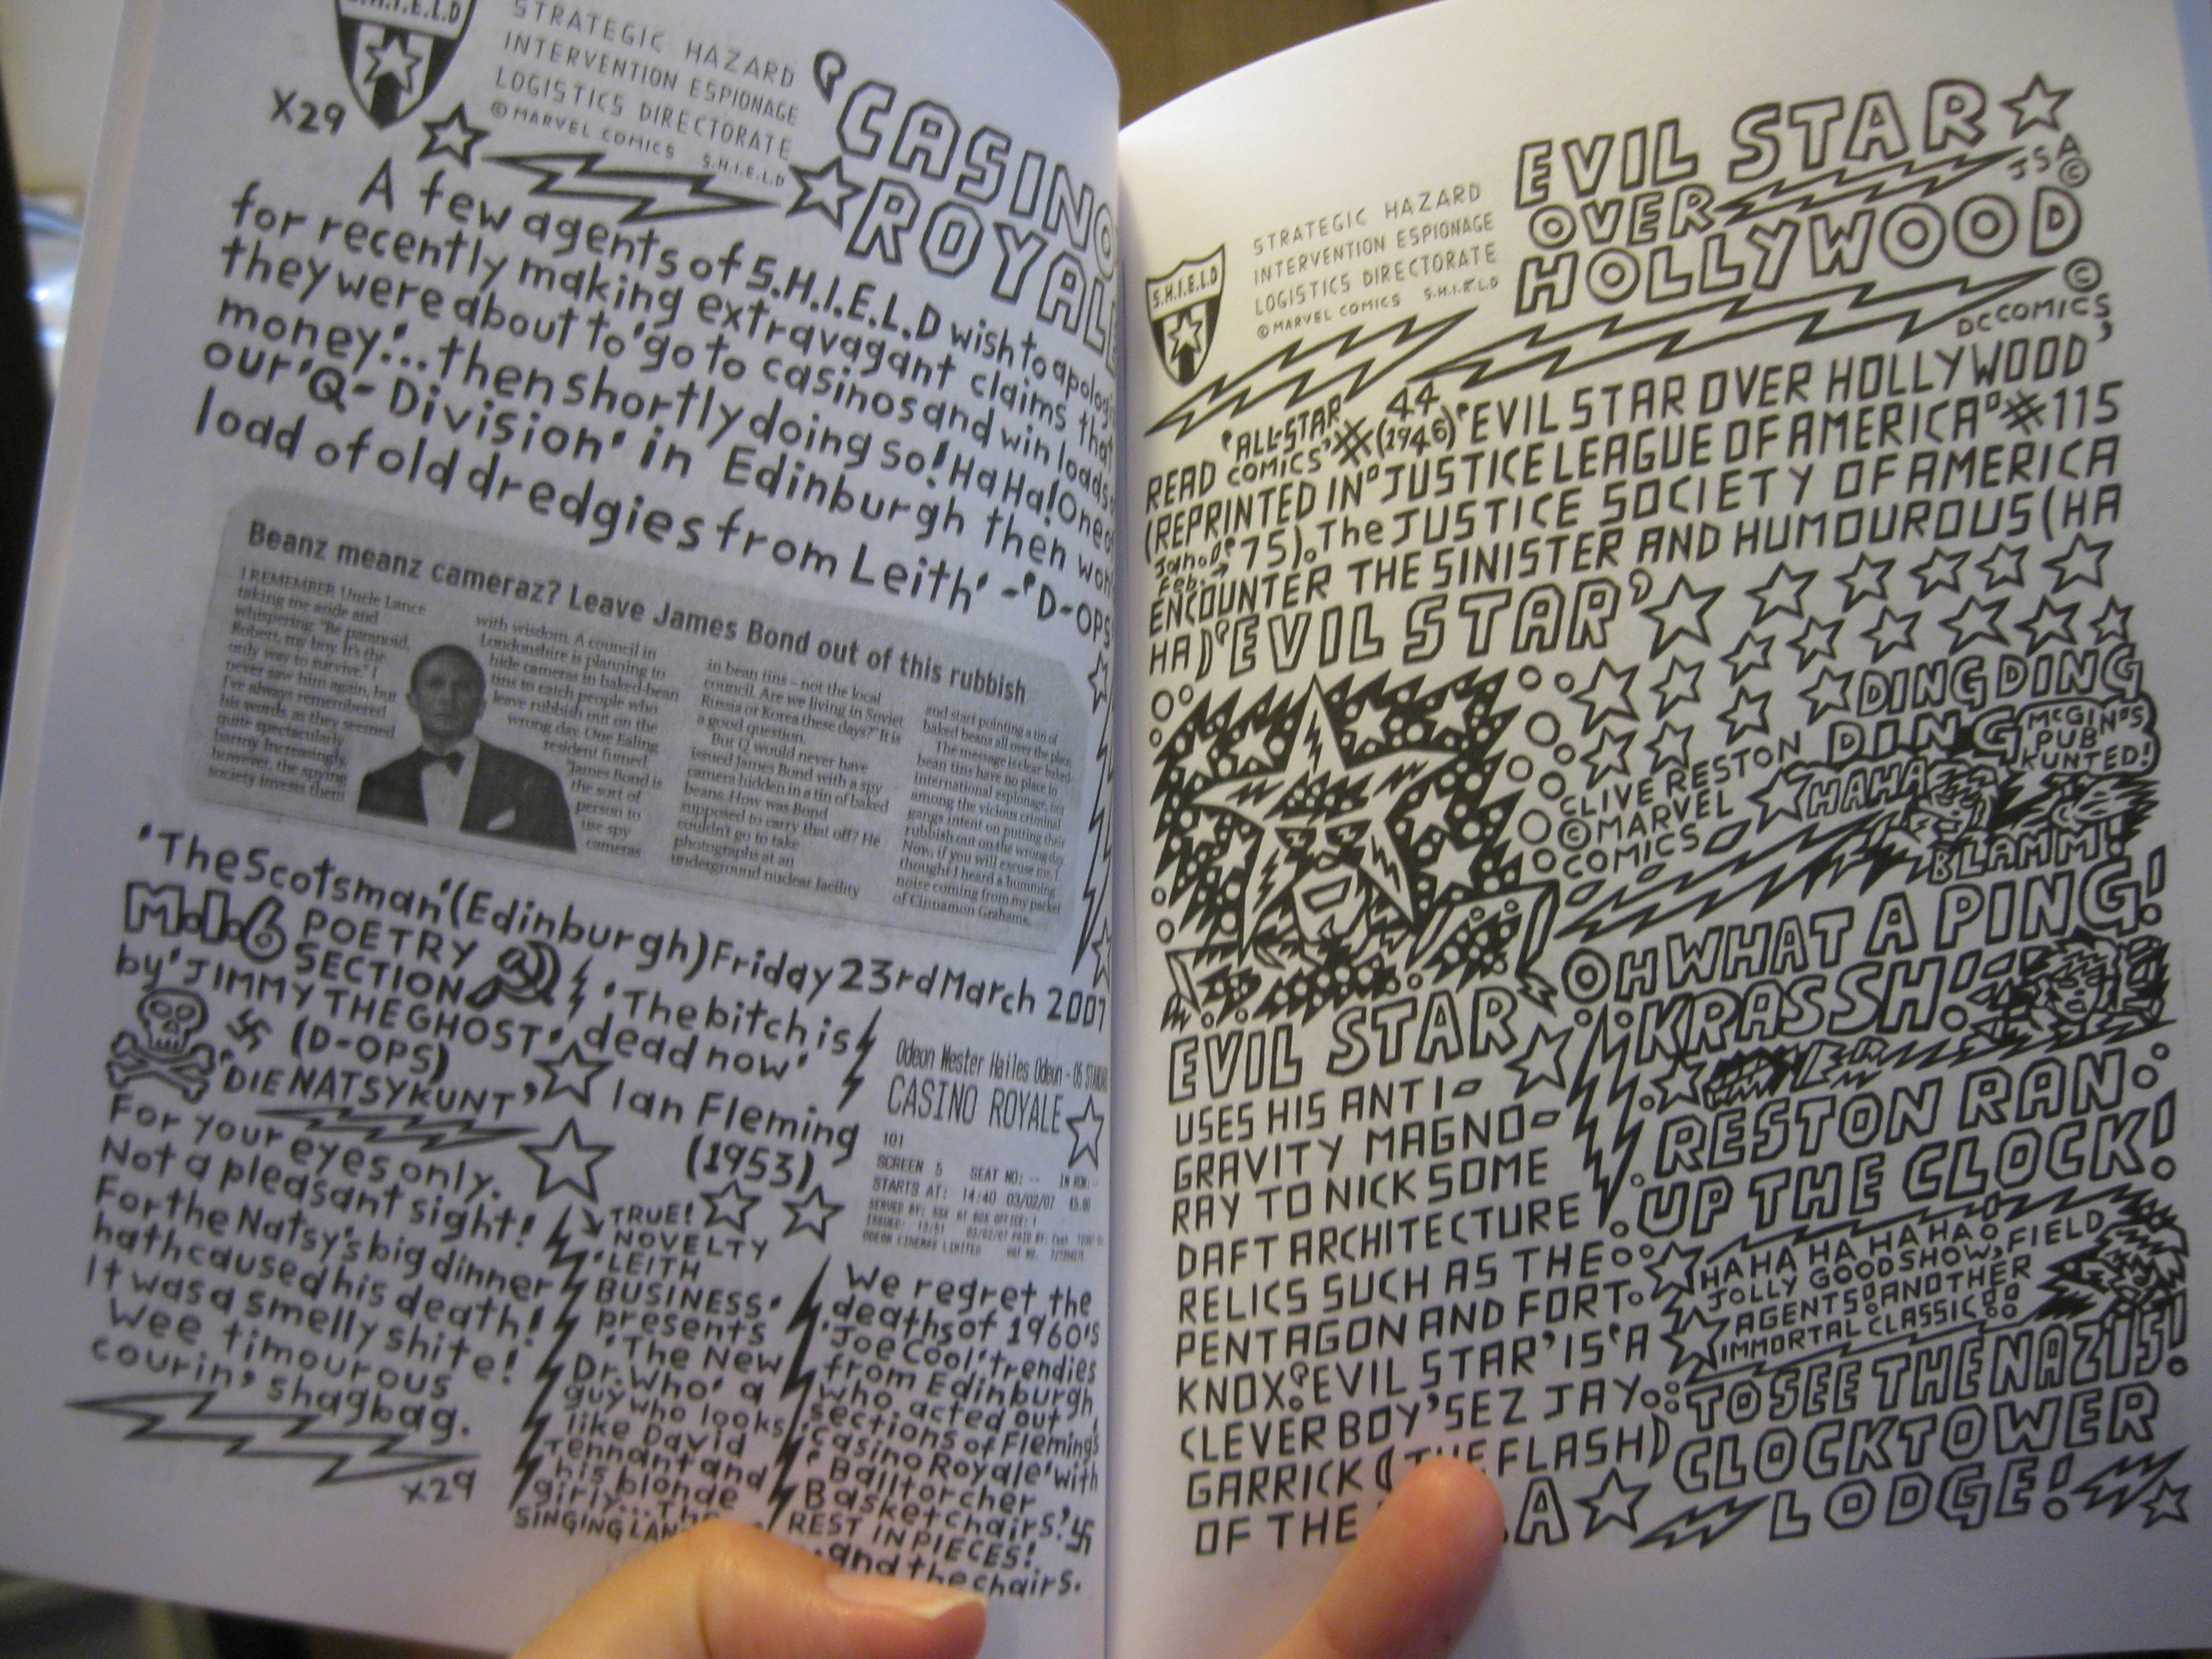 S.H.I.E.L.D
STRATEGIC HAZARD
INTERVENTION ESPIONAGE
LOGISTICS DIRECTORATE
© MARVEL COMICS S.H.I.E.L.D
X29
'CASINO
ROYALE
A few agents of S.H.I.E.L.D wish to apologi
for recently making extravagant claims that
they were about to 'go to casinos and win loads
money.'...then shortly doing so! HaHa! One of
our 'Q-Division' in Edinburgh then won
load of old dredgies from Leith' - 'D-OPS
Beanz meanz cameraz? Leave James Bond out of this rubbish
I REMEMBER Uncle Lance
taking me aside and
whispering: "Be paranoid,
Robert, my boy. It's the
only way to survive." I
never saw him again, but
I've always remembered
his words, as they seemed
quite spectacularly
barmy. Increasingly,
however, the spying
society invests them
with wisdom. A council in
Londonshire is planning to
hide cameras in baked-bean
tins to catch people who
leave rubbish out on the
wrong day. One Ealing
resident fumed:
"James Bond is
the sort of
person to
use spy
cameras
in bean tins – not the local
council. Are we living in Soviet
Russia or Korea these days?" It is
a good question.
But Q would never have
issued James Bond with a spy
camera hidden in a tin of baked
beans. How was Bond
supposed to carry that off? He
couldn't go to take
photographs at an
underground nuclear facility
and start pointing a tin of
baked beans all over the place.
The message is clear: baked-
bean tins have no place in
international espionage, nor
among the vicious criminal
gangs intent on putting their
rubbish out on the wrong day.
Now, if you will excuse me, I
thought I heard a humming
noise coming from my packet
of Cinnamon Grahams.
'The Scotsman' (Edinburgh) Friday 23rd March 2007
M.I.6 POETRY
SECTION
by 'JIMMY THE GHOST'
(D-OPS)
'DIE NATSYKUNT'
For your eyes only.
Not a pleasant sight!
For the Natsy's big dinner
hath caused his death!
It was a smelly shite!
Wee timourous
courin' shagbag.
X29
'The bitch is
dead now'
Ian Fleming
(1953)
Odeon Wester Hailes Odeon - 05
CASINO ROYALE
101
SCREEN 5 SEAT NO: --
STARTS AT: 14:40 03/02/07
ODEON CINEMAS LIMITED
TRUE!
NOVELTY
'LEITH
BUSINESS'
presents
'The New
Dr. Who' a
guy who looks
like David
Tennant and
his blonde
girly... The
SINGING
We regret the
deaths of 1960's
'Joe Cool' trendies
from Edinburgh
who acted out
sections of Fleming's
'Casino Royale' with
'Balltorcher
Basketchairs!'
REST IN PIECES!
...and the chairs.
S.H.I.E.L.D
STRATEGIC HAZARD
INTERVENTION ESPIONAGE
LOGISTICS DIRECTORATE
© MARVEL COMICS S.H.I.E.L.D
EVIL STAR
OVER
HOLLYWOOD
JSA ©
© DC COMICS
READ 'ALL-STAR COMICS' # 44 (1946) 'EVIL STAR OVER HOLLYWOOD'
(REPRINTED IN "JUSTICE LEAGUE OF AMERICA" # 115
Jan. Feb. '75). The JUSTICE SOCIETY OF AMERICA
ENCOUNTER THE SINISTER AND HUMOUROUS (HA
HA) 'EVIL STAR'
DING DING
DING
CLIVE RESTON
© MARVEL
COMICS
HAHA
MCGINN'S
PUB
KUNTED!
BLAMM!
OH WHAT A PING!
KRASSH!
RESTON RAN
UP THE CLOCK!
HAHA HA HA HA
JOLLY GOOD SHOW, FIELD
AGENTS! ANOTHER
IMMORTAL CLASSIC!
TO SEE THE NAZIS!
CLOCKTOWER
LODGE!
EVIL STAR
USES HIS ANTI-
GRAVITY MAGNO-
RAY TO NICK SOME
DAFT ARCHITECTURE
RELICS SUCH AS THE
PENTAGON AND FORT
KNOX. 'EVIL STAR' IS 'A
CLEVER BOY' SEZ JAY
GARRICK (THE FLASH)
OF THE